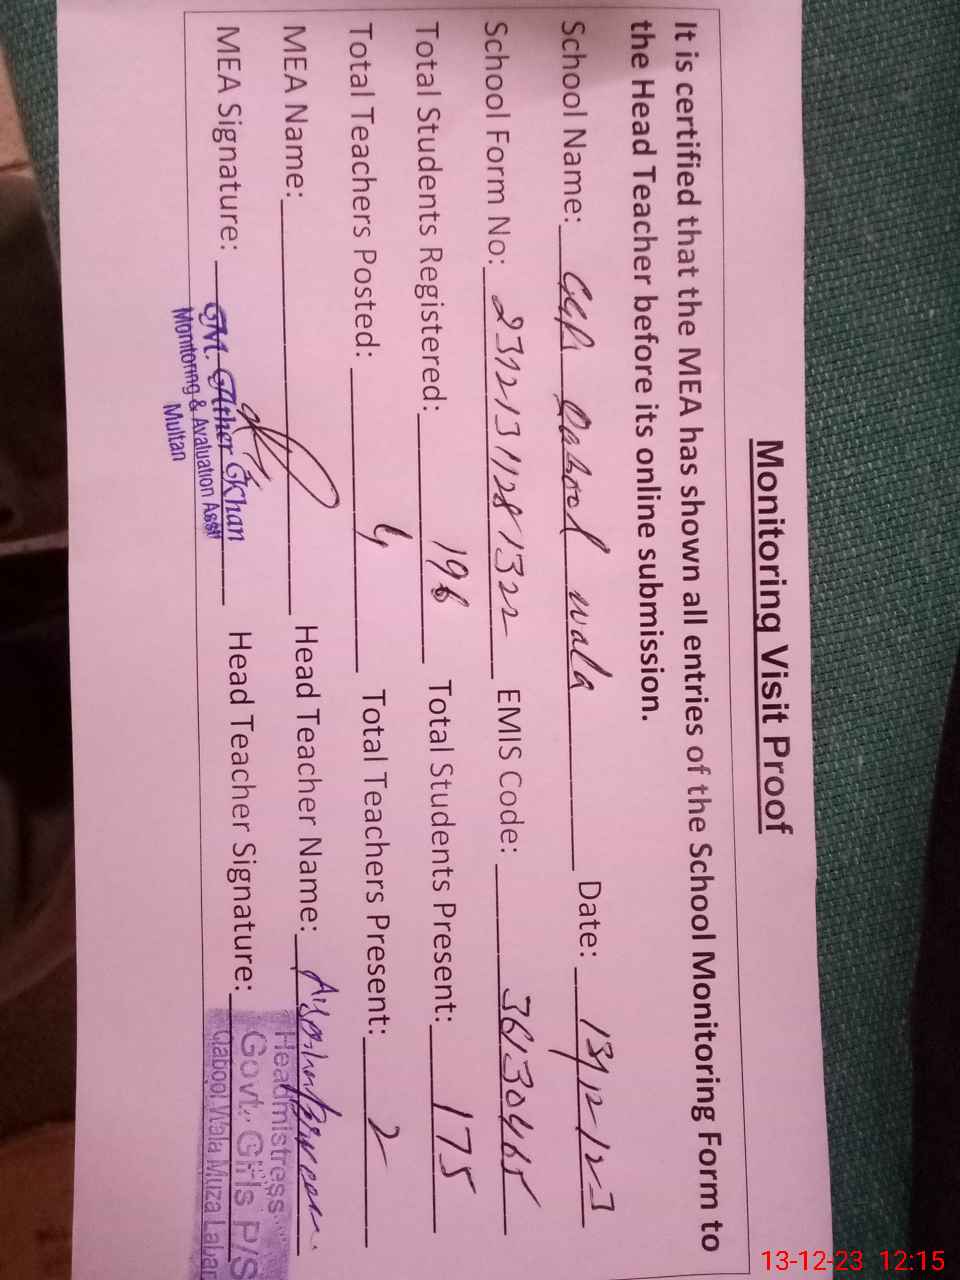 Monitoring Visit Proof
It is certified that the MEA has shown all entries of the School Monitoring Form to
the Head Teacher before its online submission.
School Name: Qabool wala Date: 13/12/23
School Form No: EMIS Code: 36130465
Total Students Registered: 196 Total Students Present: 175
Total Teachers Posted: 4 Total Teachers Present: 2
MEA Name: Head Teacher Name:
MEA Signature: Head Teacher Signature:
M. Ather Khan
Monitoring & Avaluation Asstt
Multan
Headmistress
Govt. Girls P/S
Qabool Wala Muza Labar
13-12-23 12:15